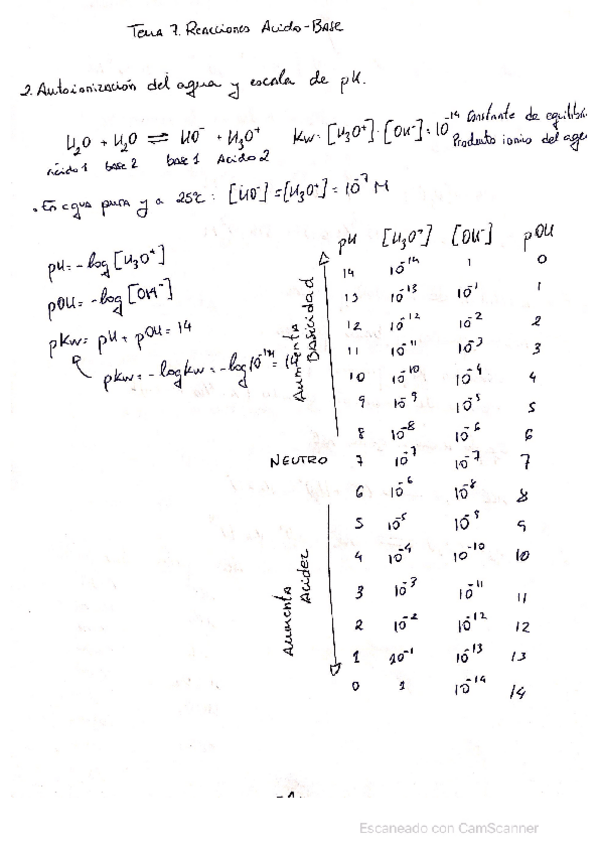 Tema 7. Reacciones Acido-Base
2. Autoionización del agua y escala de pH.
H₂O + H₂O ⇌ HO⁻ + H₃O⁺ Kw = [H₃O⁺]·[OH⁻] = 10⁻¹⁴ Constante de equilibri
ácido 1 base 2 base 1 Acido 2 Producto ionico del agu
. En agua pura y a 25ºC : [HO⁻] = [H₃O⁺] = 10⁻⁷ M
pH = -log [H₃O⁺]
pOH = -log [OH⁻]
pKw = pH + pOH = 14
pKw = -log Kw = -log 10⁻¹⁴ = 14
pH [H₃O⁺] [OH⁻] pOH
14 10⁻¹⁴ 1 0
13 10⁻¹³ 10⁻¹ 1
12 10⁻¹² 10⁻² 2
11 10⁻¹¹ 10⁻³ 3
10 10⁻¹⁰ 10⁻⁴ 4
9 10⁻⁹ 10⁻⁵ 5
8 10⁻⁸ 10⁻⁶ 6
Aumenta Basicidad
NEUTRO 7 10⁻⁷ 10⁻⁷ 7
6 10⁻⁶ 10⁻⁸ 8
5 10⁻⁵ 10⁻⁹ 9
4 10⁻⁴ 10⁻¹⁰ 10
3 10⁻³ 10⁻¹¹ 11
2 10⁻² 10⁻¹² 12
1 10⁻¹ 10⁻¹³ 13
0 1 10⁻¹⁴ 14
Aumenta Acidez
-1-
Escaneado con CamScanner